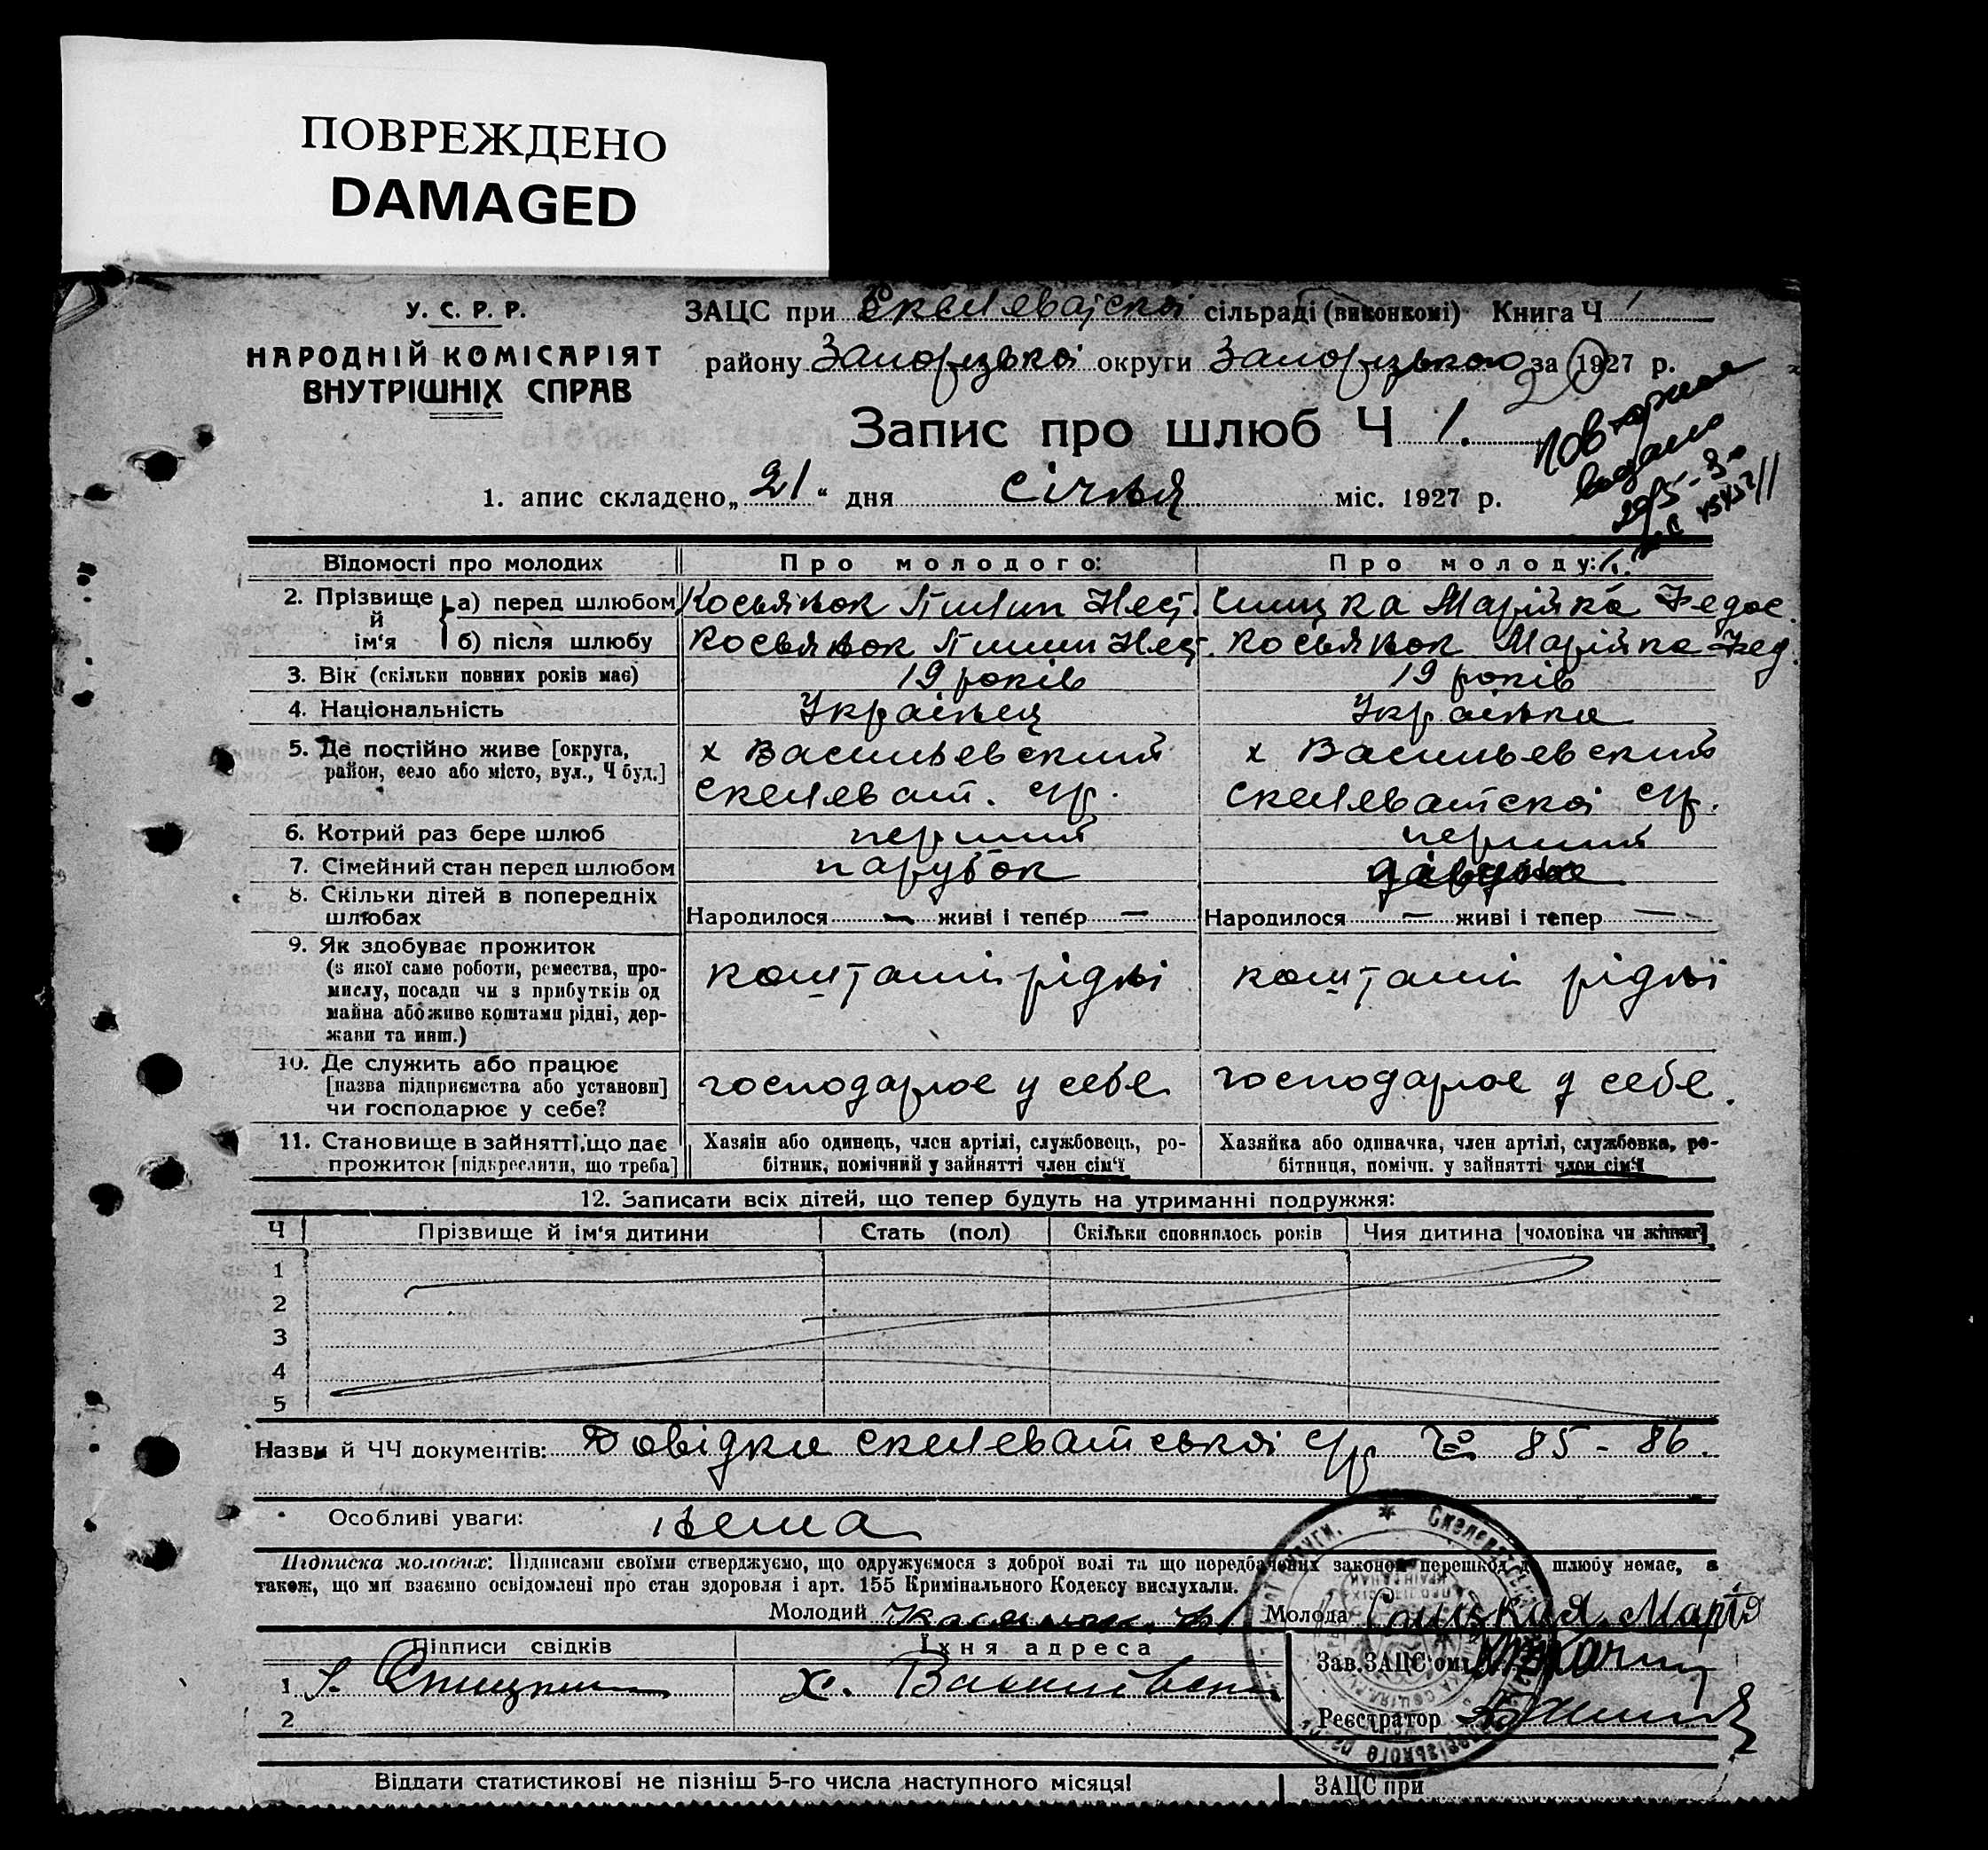 ПОВРЕЖДЕНО
DAMAGED
У. С. Р. Р.
НАРОДНІЙ КОМІСАРІЯТ
ВНУТРІШНІХ СПРАВ
ЗАЦС при сільраді (виконкомі) Книга Ч 1
району Запорізької округи Запорізькою за 1927 р.
Запис про шлюб Ч 1.
Повторное
видано
1. апис складено „21“ дня січня міс. 1927 р.
Відомості про молодих Про молодого: Про молоду:
2. Прізвище й ім‘я
а) перед шлюбом Косьянок Пилип Нест. Марійка Федос.
б) після шлюбу Косьянок Пилип Нест. Косьянок Марійка Фед.
3. Вік (скільки повних років має) 19 років 19 років
4. Національність Українец Українка
5. Де постійно живе [округа, х Васильевский х Васильевский
район, село або місто, вул., Ч буд.] Скелеват. с/р. Скелеватскої с/р.
6. Котрий раз бере шлюб перший перший
7. Сімейний стан перед шлюбом парубок дівчина
8. Скільки дітей в попередніх
шлюбах Народилося — живі і тепер — Народилося — живі і тепер —
9. Як здобуває прожиток
(з якої саме роботи, ремества, про-
мислу, посади чи з прибутків од
майна або живе коштами рідні, дер-
жави та инш.)
коштами рідні коштами рідні
10. Де служить або працює
[назва підприємства або установи]
чи господарює у себе?
господарює у себе господарює у себе.
11. Становище в зайнятті, що дає
прожиток [підкреслити, що треба]
Хазяін або одинець, член артілі, службовець, ро-
бітник, помічний у зайнятті член сім‘ї
Хазяйка або одиначка, член артілі, службовка, ро-
бітниця, помічн. у зайнятті член сім‘ї
12. Записати всіх дітей, що тепер будуть на утриманні подружжя:
Ч Прізвище й ім‘я дитини Стать (пол) Скільки сповнилось років Чия дитина [чоловіка чи жінки]
1
2
3
4
5
Назви й ЧЧ документів: Довідки Скелеватської с/р 85 - 86.
Особливі уваги: нема
Підписка молодих: Підписами своїми стверджуємо, що одружуємося з доброї волі та що передбачених законом перешкод до шлюбу немає, а
також, що ми взаємно освідомлені про стан здоровля і арт. 155 Кримінального Кодексу вислухали.
Молодий Молода
Підписи свідків Їхня адреса
Зав. ЗАЦС‘ом
1 х.
2
Реєстратор
Віддати статистикові не пізніш 5-го числа наступного місяця!
ЗАЦС при